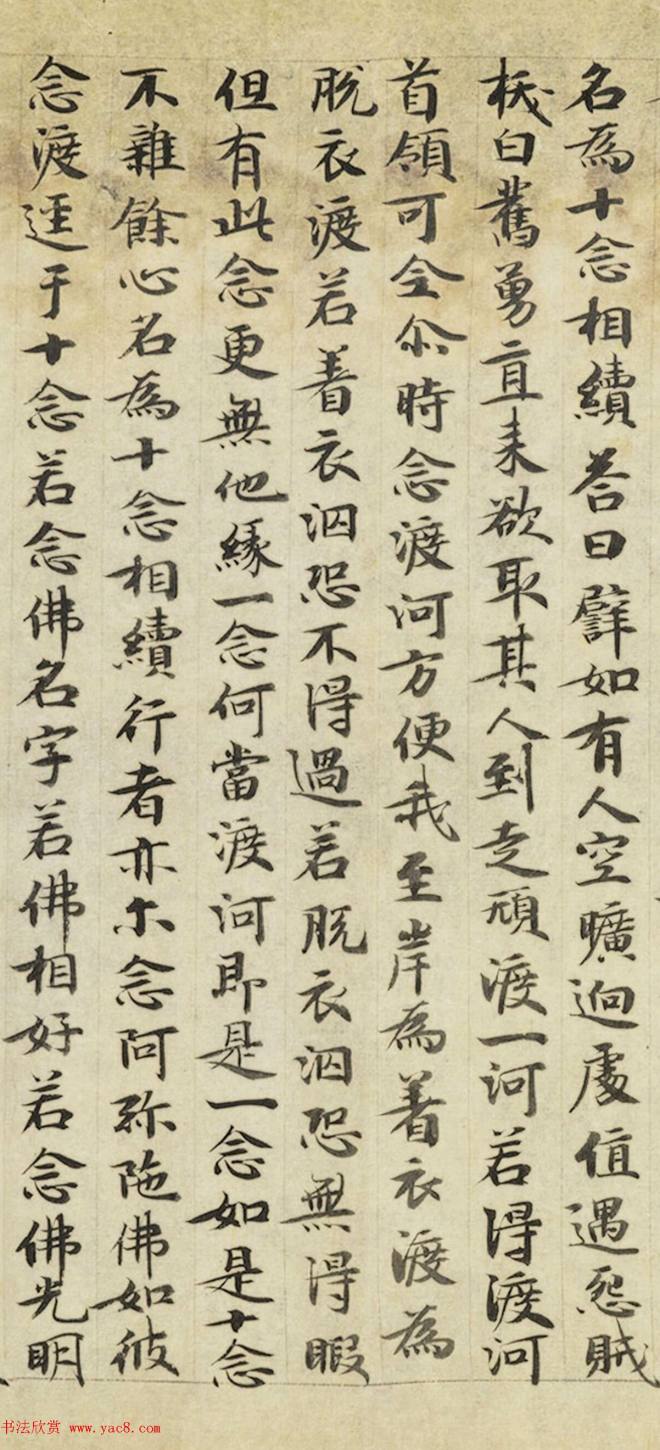 名為十念相續荅曰譬如有人空曠逈處值遇怨賊
拔白舊勇直来欲取其人到走須渡一河若得渡河
首領可全尒時念渡河方便我至岸為著衣渡為
脱衣渡若著衣泅恐不得過若脱衣泅恐無得暇
但有此念更無他緣一念何當渡河即是一念如是十念
不雜餘心名為十念相續行者亦尒念阿弥陁佛如彼
念渡逕于十念若念佛名字若佛相好若念佛光明
书法欣赏 www.yac8.com